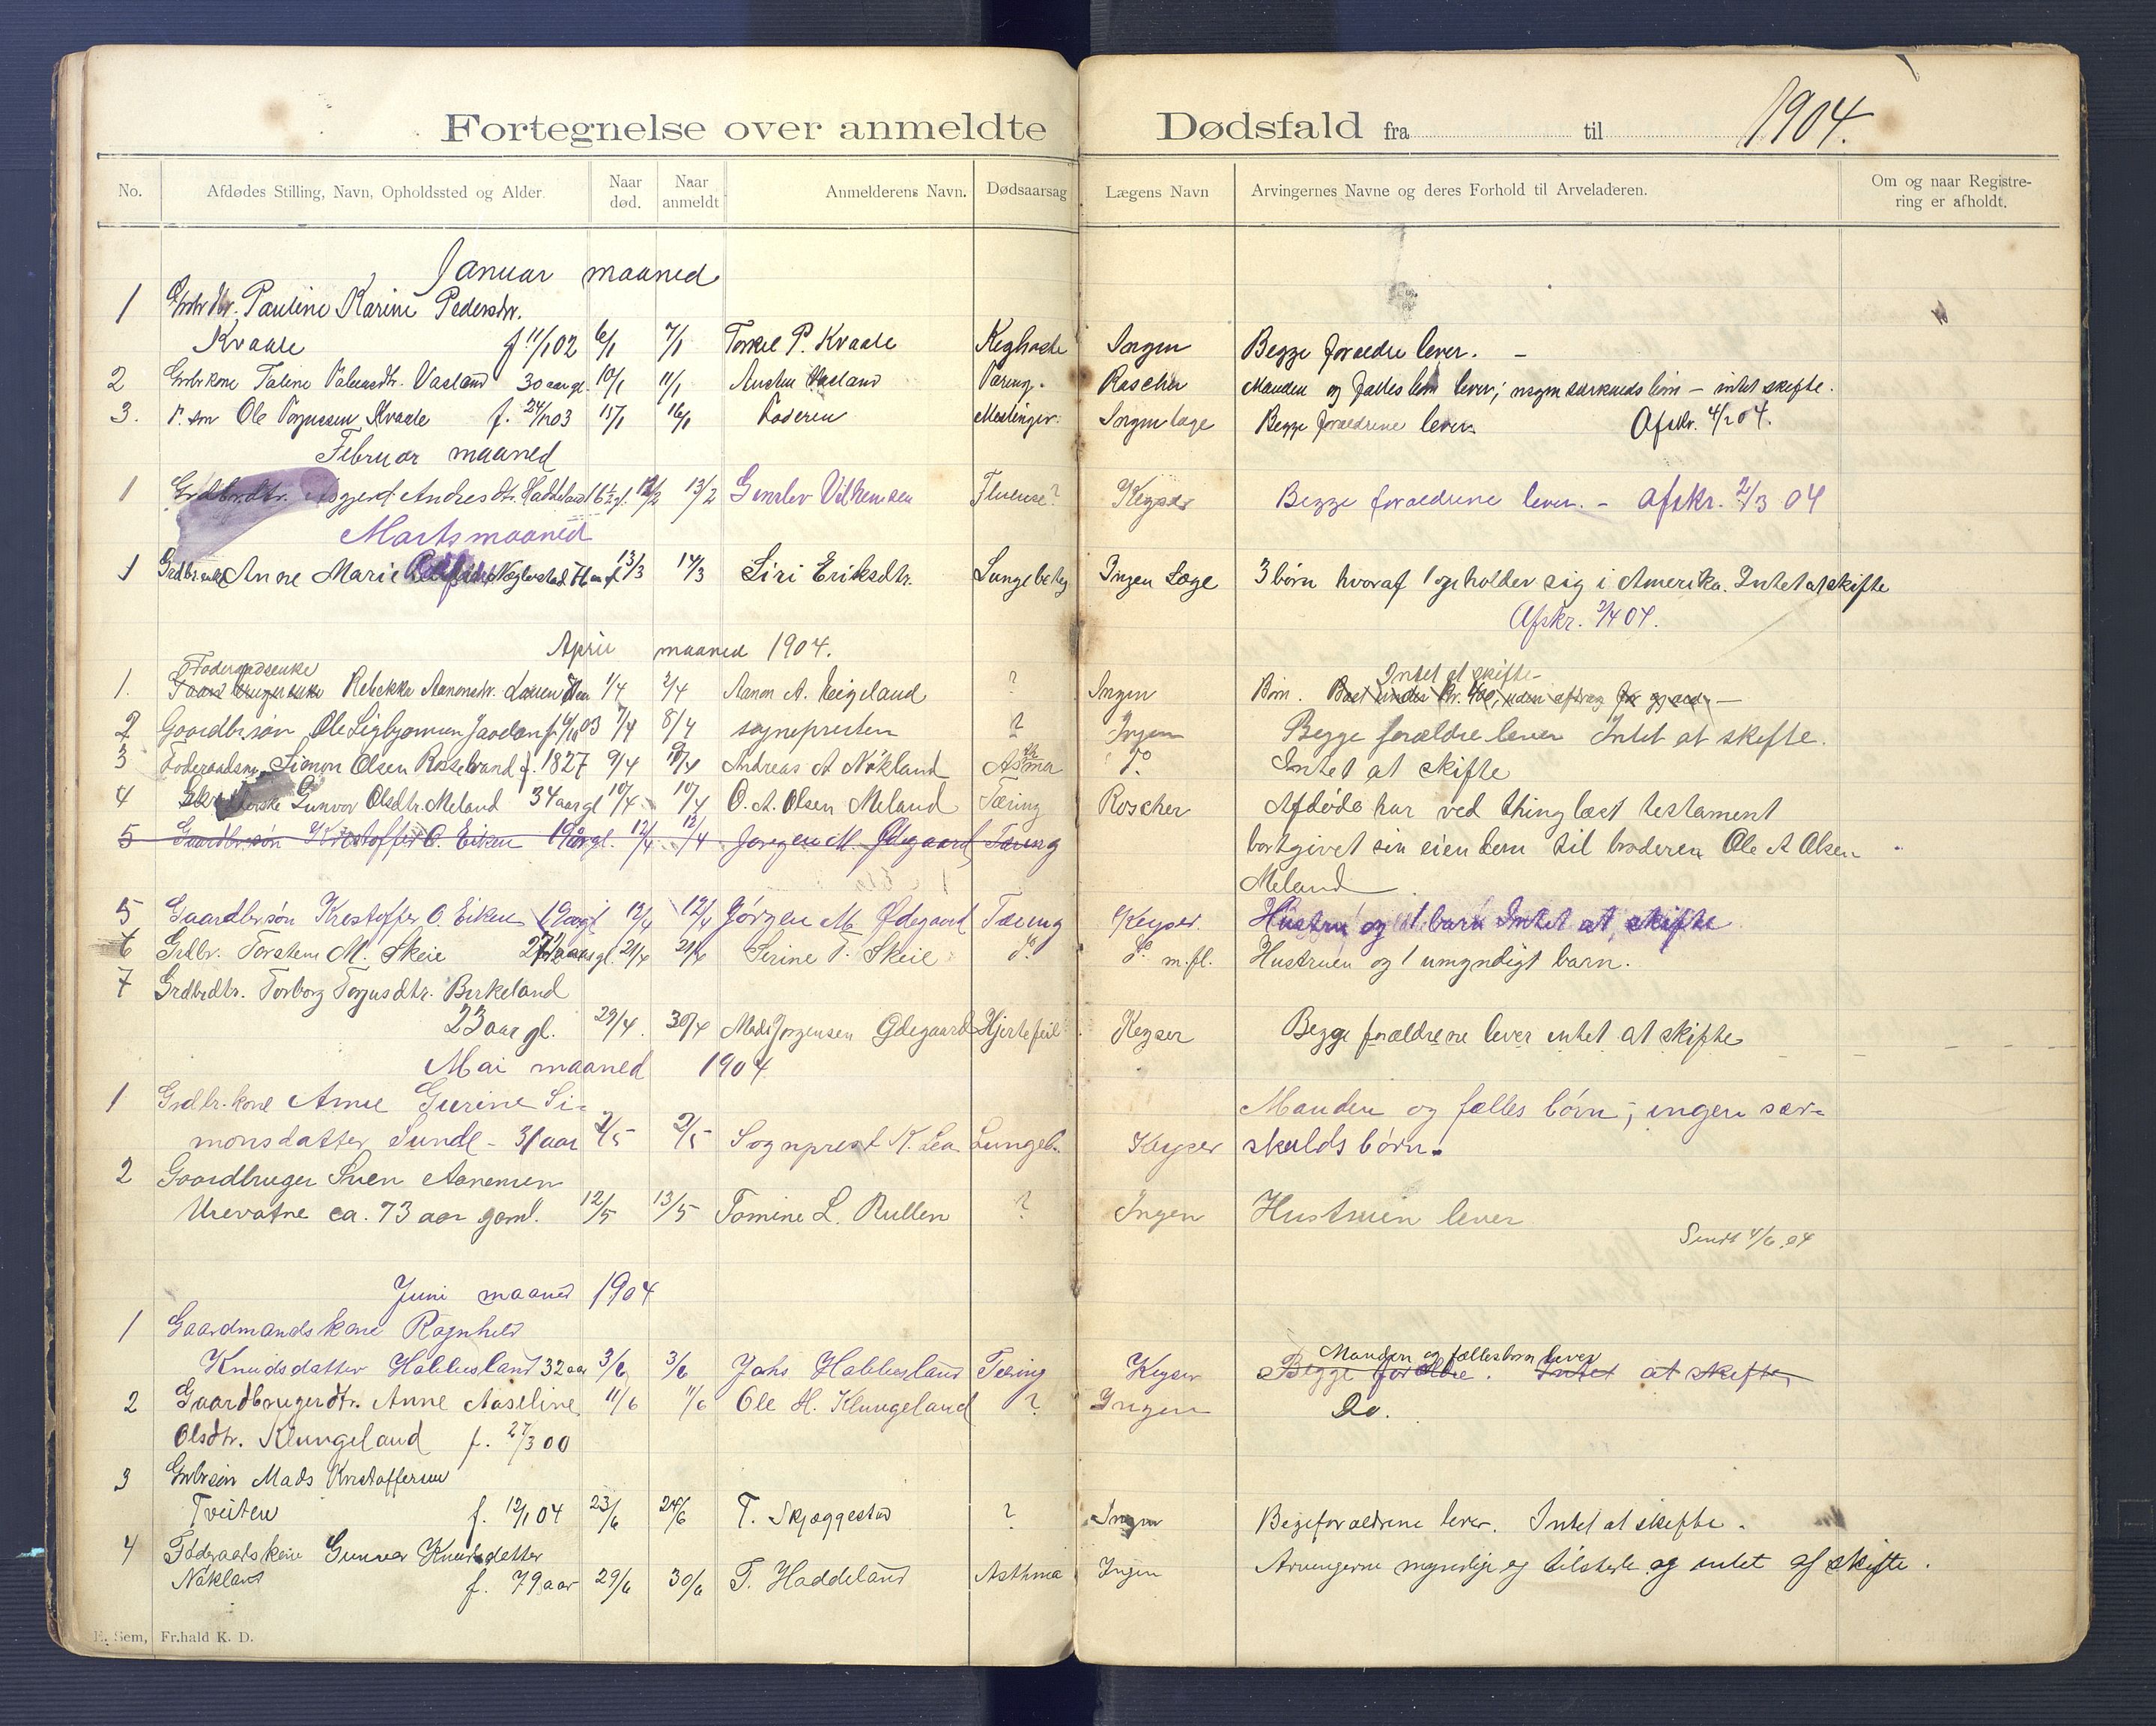 Fortegnelse over anmeldte Dødsfald fra til 1904.
No. Afdødes Stilling, Navn, Opholdssted og Alder. Naar død. Naar anmeldt Anmelderens Navn. Dødsaarsag Lægens Navn Arvingernes Navne og deres Forhold til Arveladeren. Om og naar Registrering er afholdt.
Januar maaned
1 Grbrdtr. Pauline Karine Pedersdtr.
Kvaale f 11/1 02 6/1 7/1 Torkel P. Kvaale Kighoste Ingen Begge foraeldre lever. –
2 Grbrkone Taline Vasland 30 aar gl. 10/1 11/1 Vasland Tæring. Roscher Manden og fælles børn lever; ingen særkulds børn – intet skifte.
3. Ole Kvaale f. 24/12 03 15/1 16/1 Faderen Meslinger. Ingen læge Begge foraeldrene lever. Afskr. 4/2 04.
Februar maaned
1 Grdbr.dtr. Asgjerd Andresdtr. Haddeland 6 1/2 gl. 12/2 13/2 Gunlev Vilhemsen Fluense? Keyser Begge foraeldrene lever. – Afskr. 2/3 04
Marts maaned
1 Grdbr.enke Anne Marie 13/3 14/3 Siri Eriksdtr. Lungebetæ Ingen Læge 3 børn hvoraf 1 opholder sig i Amerika. Intet at skifte
Afskr. 2/4 04.
April maaned 1904.
Foderaadsenke Intet at skifte
1. Rebekke Aanensdr. 1/4 2/4 Aanon A. Eeigeland ? Ingen Børn. Boet under Kr. 400, uden afdrag for gjæld –
2 Gaardbr.søn Ole Sigbjørnsen f. 6/10 03 7/4 8/4 sognepresten ? Ingen Begge forældre lever Intet at skifte.
3 Foderaadsm. Simon Olsen Rosseland f. 1827 9/4 10/4 Andreas A Nökland Asthma Do Intet at skifte
4 Gunvor Olsdtr. Meland 34 aar gl 10/4 10/4 O. A. Olsen Meland Tæring Roscher Afdøde har ved thinglæst testament
5 Gaardbr.søn Kristoffer O. Eiken 19 aar gl. 12/4 12/4 Jørgen M. Ødegaard Tæring bortgivet sin eiendom til broderen Ole A Olsen
Meland
5 Gaardbr.søn Kristoffer O. Eiken 19 aar gl 12/4 12/4 Jørgen M. Ødegaard Tæring Keyser. Hustru og 1 barn Intet at skifte
6 Grdbr. Torstein M. Skeie 27 1/2 aar gl. 21/4 21/4 Serine T. Skeie do. Do m.fl. Hustruen og 1 umyndigt barn.
7 Grdbrdtr. Torborg Torjusdtr. Birkeland
23 aar gl. 29/4. 30/4 Mads Jørgensen Ødegaard Hjertefeil Keyser Begge forældrene lever intet at skifte
Mai maaned 1904
1 Grdbr.kone Anne Gurine Si- Manden og fælles børn; ingen sær-
monsdatter Sunde – 31 aar 2/5 2/5 Sogneprest K. Lea Lungeb. Keyser skulds børn.
2 Gaardbruger Sven Aanensen
Urevatne ca. 73 aar gaml. 12/5 13/5 Tomine L. Rullen ? Ingen Hustruen lever
Sendt 4/6 04
Juni maaned 1904
1 Gaardmandskone Ragnhild
Manden og fællesbørn lever
Knudsdatter Hallesland 32 aar 3/6 3/6 Johs Hallesland Tæring Keyser Begge forældre. Intet at skifte
2 Gaardbrugerdtr. Anne Aaseline 11/6 11/6 Ole H. Klungeland ? Ingen Do.
Olsdtr. Klungeland f. 27/3 00
3 Grbrsøn Mads Kristoffersen
Tveiten f. 12/1 04 23/6 24/6 T. Skjæggestad ? Ingen Begge foraeldrene lever. Intet at skifte.
4 Föderaadskone Gunvor Knudsdatter
Nökland f. 79 aar 29/6 30/6 T. Haddeland Asthma Ingen Arvingerne myndige og tilstede og intet at skifte.
E. Sem, Fr.hald K. D.